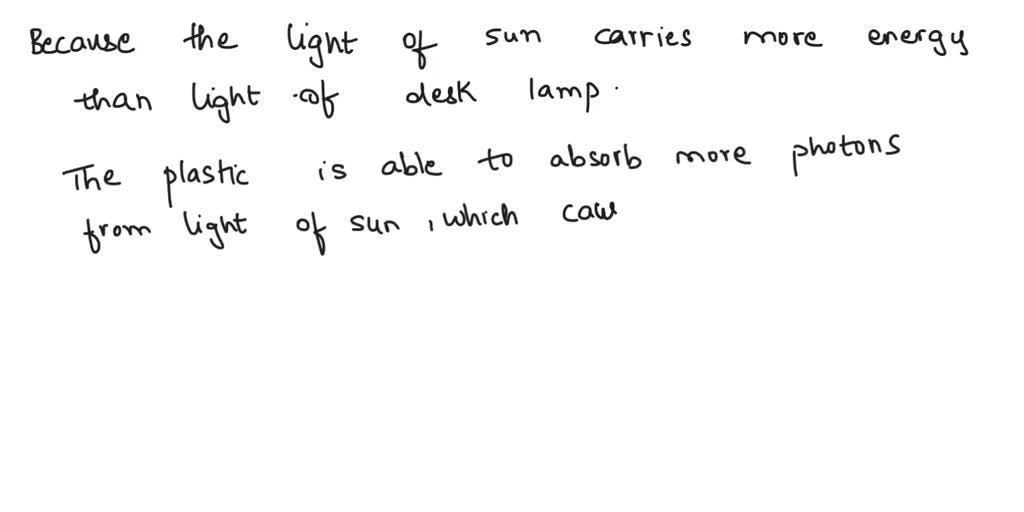 Because the light of sun carries more energy
than light of desk lamp.
The plastic is able to absorb more photons
from light of sun, which